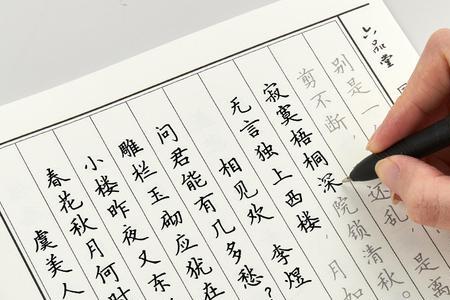 六品堂
别是一
剪不断，还乱，
寂寞梧桐深院锁清秋。
无言独上西楼，月如
相见欢 李煜
问君能有几多愁？
雕栏玉砌应犹在
小楼昨夜又东
春花秋月何时
虞美人